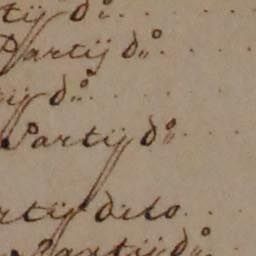 tij do . . . .
Partij do . . . .
tij do . . . .
Partij do . . .
rtij dito . . .
Partij do .